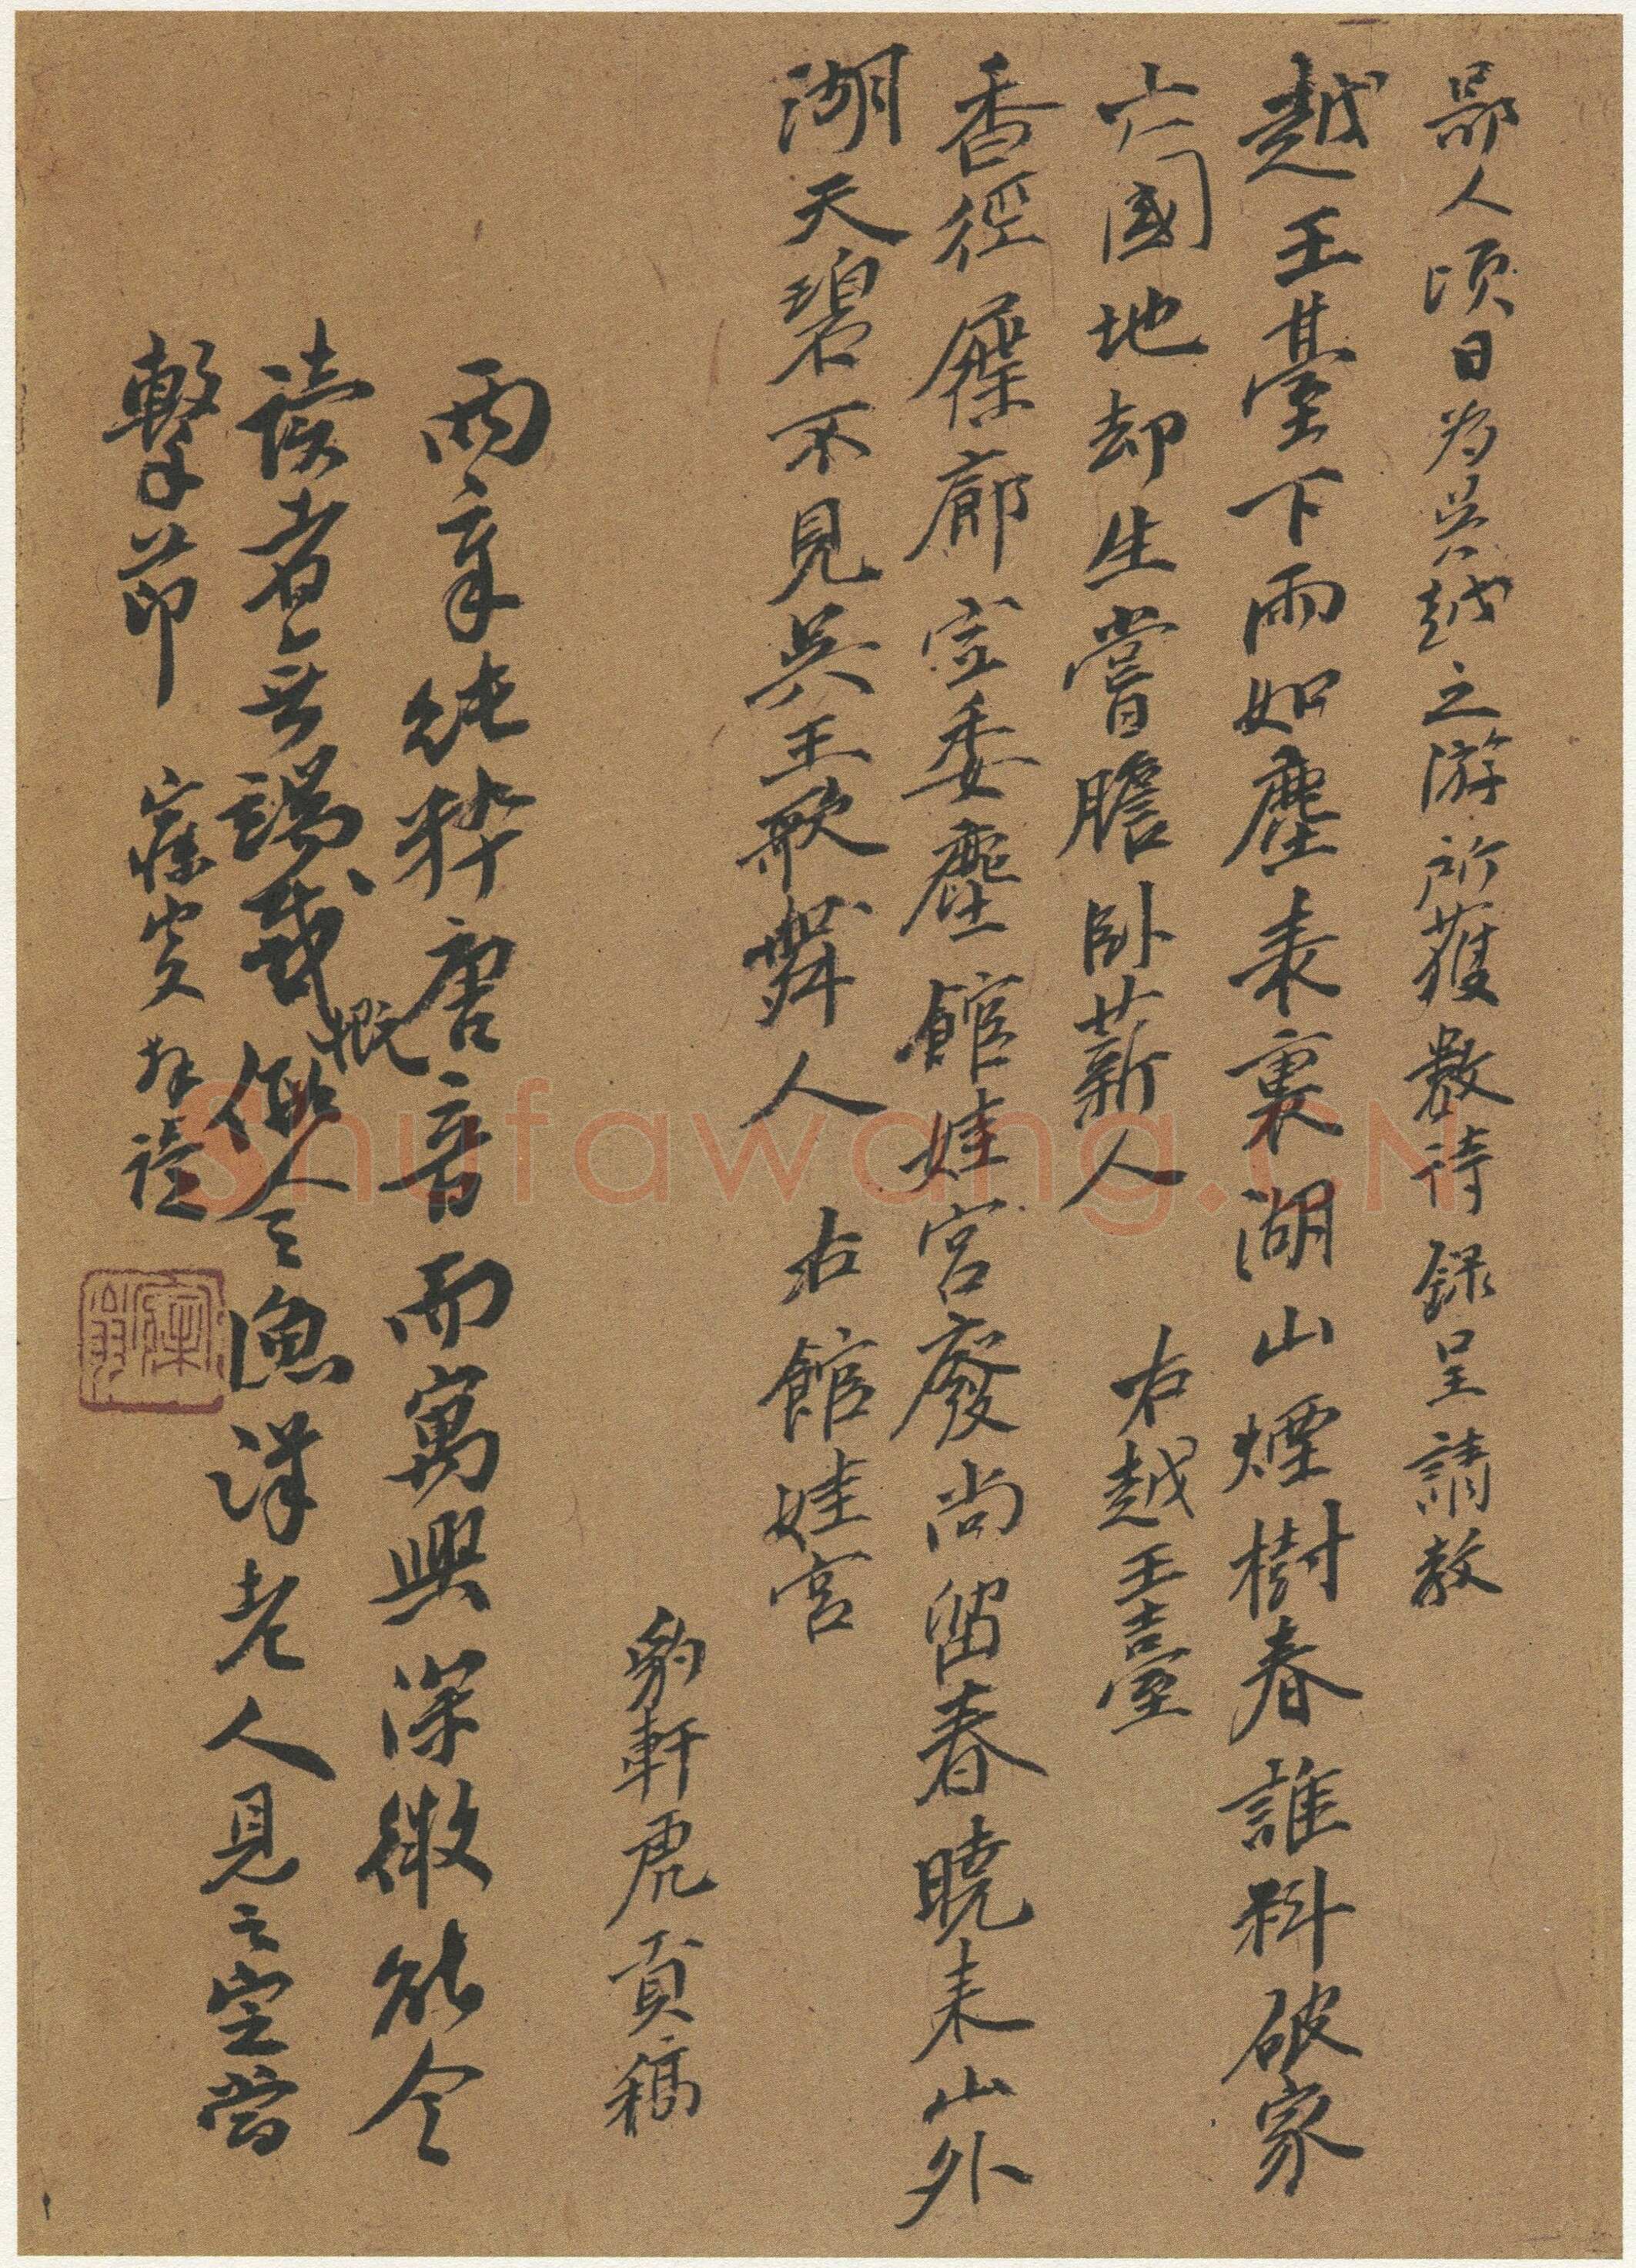 鄙人頃日為吳越之游所獲數詩録呈請教
越王臺下雨如塵表裏湖山煙樹春誰料破家
亡國地却生嘗膽臥薪人 右越王臺
香徑屧廊空委塵館娃宮廢尚留春曉來山外
湖天碧不見吳王歌舞人 右館娃宮
豹軒虎貢稿
兩章純粹唐音而寓興深微能令
讀者無端感概令漁洋老人見之定當
擊節 拜讀
Shufawang.CN